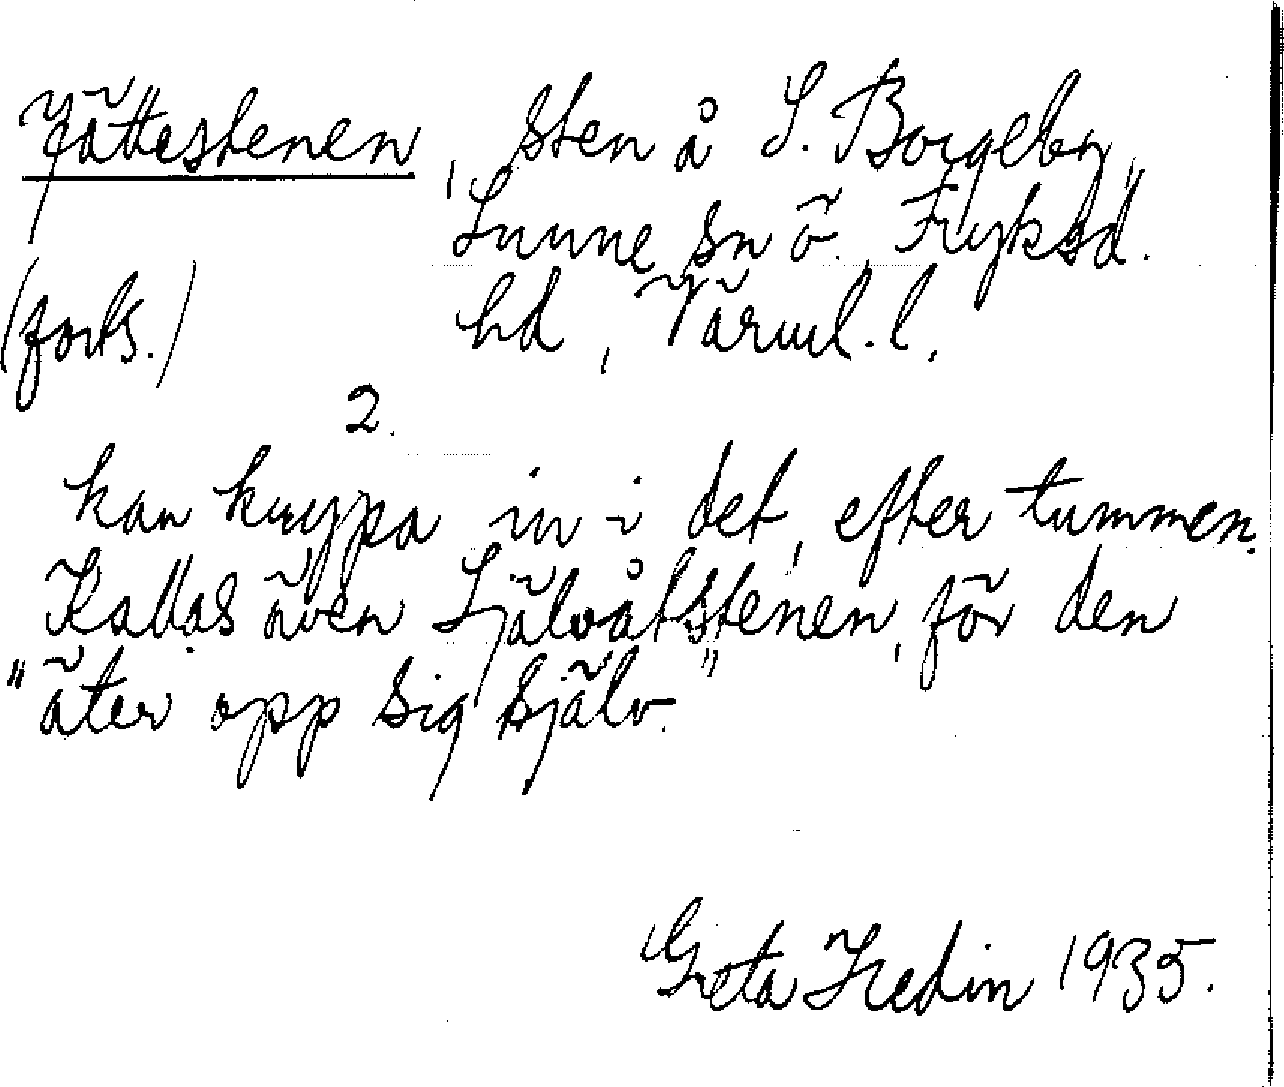 Jättestenen, sten å S. Borgeby,
Sunne sn ö. Fryksd.
(forts.) hd, Värml. l.
2.
kan krypa in i det, efter tummen.
Kallas även Självätstenen, för den
"äter opp sig själv."
Greta Hedin 1935.